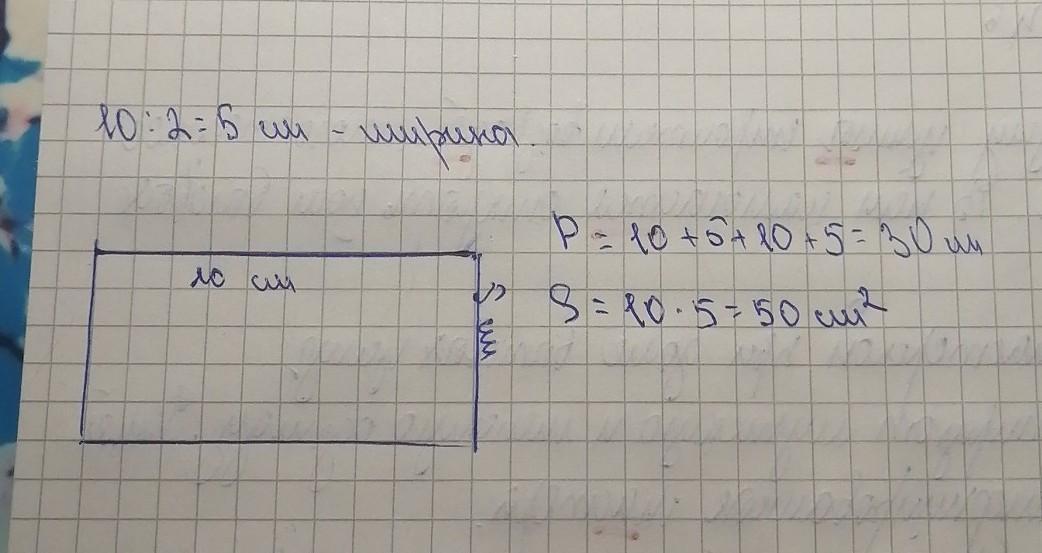 10:2=5 см - ширина.
10 см
5 см
P = 10+5+10+5=30 см
S = 10·5=50 см²